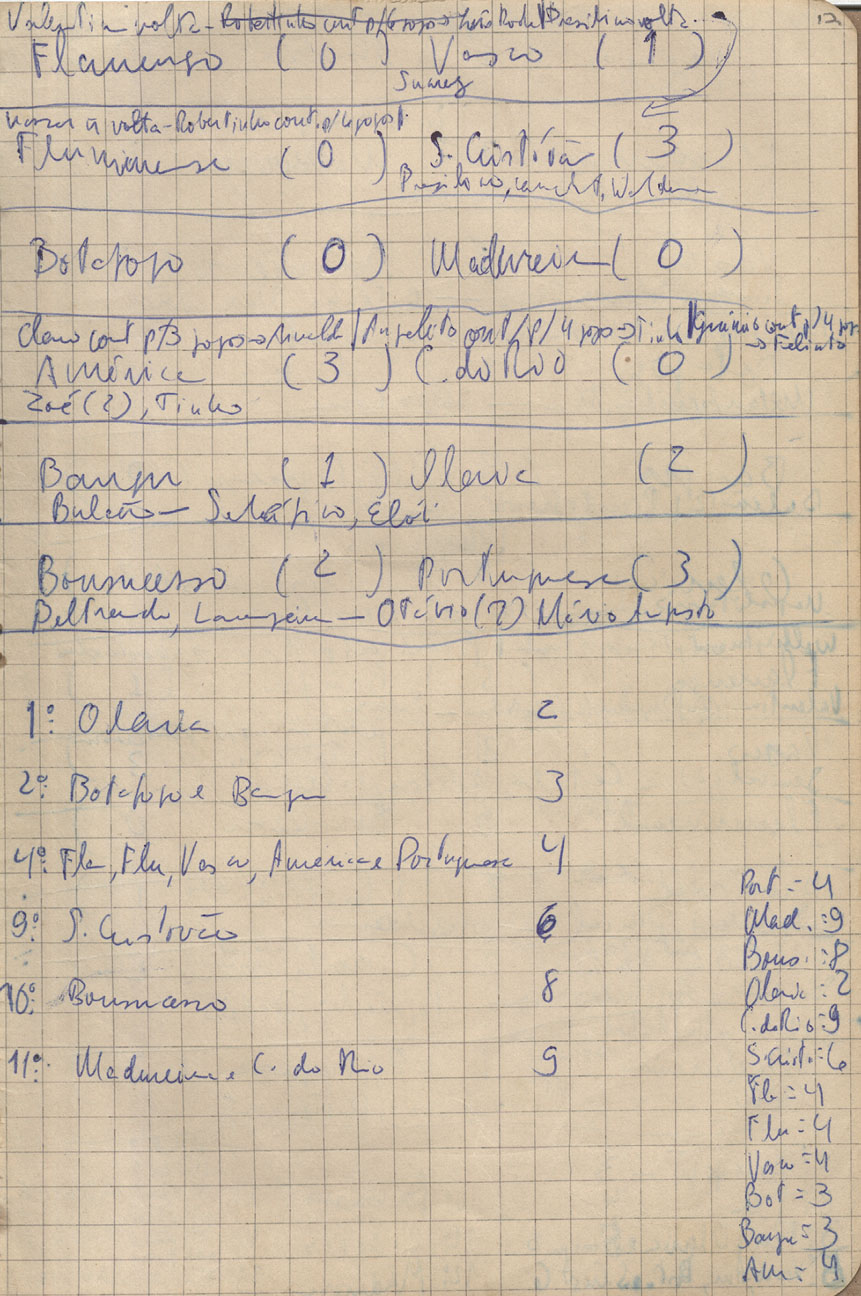 Valentim volta - Robertinho cont p/6 jogos → João Rode | Brasilino volta
12
Flamengo ( 0 ) Vasco ( 1 )
Suarez
volta - Robertinho cont. p/4 jogos
Fluminense ( 0 ) S. Cristóvão ( 3 )
Brasilino, Waldemar
Botafogo ( 0 ) Madureira ( 0 )
cont p/3 jogos → | Angelito cont p/4 jogos → Tinho | cont p/4 jogos
→ Felinto
América ( 3 ) C. do Rio ( 0 )
Zoé (2), Tinho
Bangu ( 1 ) Olaria ( 2 )
Bulcão - , Elói
Bonsucesso ( 2 ) Portuguesa ( 3 )
Beltrando, Laranjeira - Otávio (2) Mário Augusto
1º: Olaria 2
2º: Botafogo e Bangu 3
4º: Fla, Flu, Vasco, América e Portuguesa 4
9º: S. Cristovão 6
10º: Bonsucesso 8
11º: Madureira e C. do Rio 9
Port = 4
Mad. = 9
Bons. = 8
Olaria = 2
C. do Rio = 9
S. Crist. = 6
Fla = 4
Flu = 4
Vasco = 4
Bot = 3
Bangu = 3
Am = 4